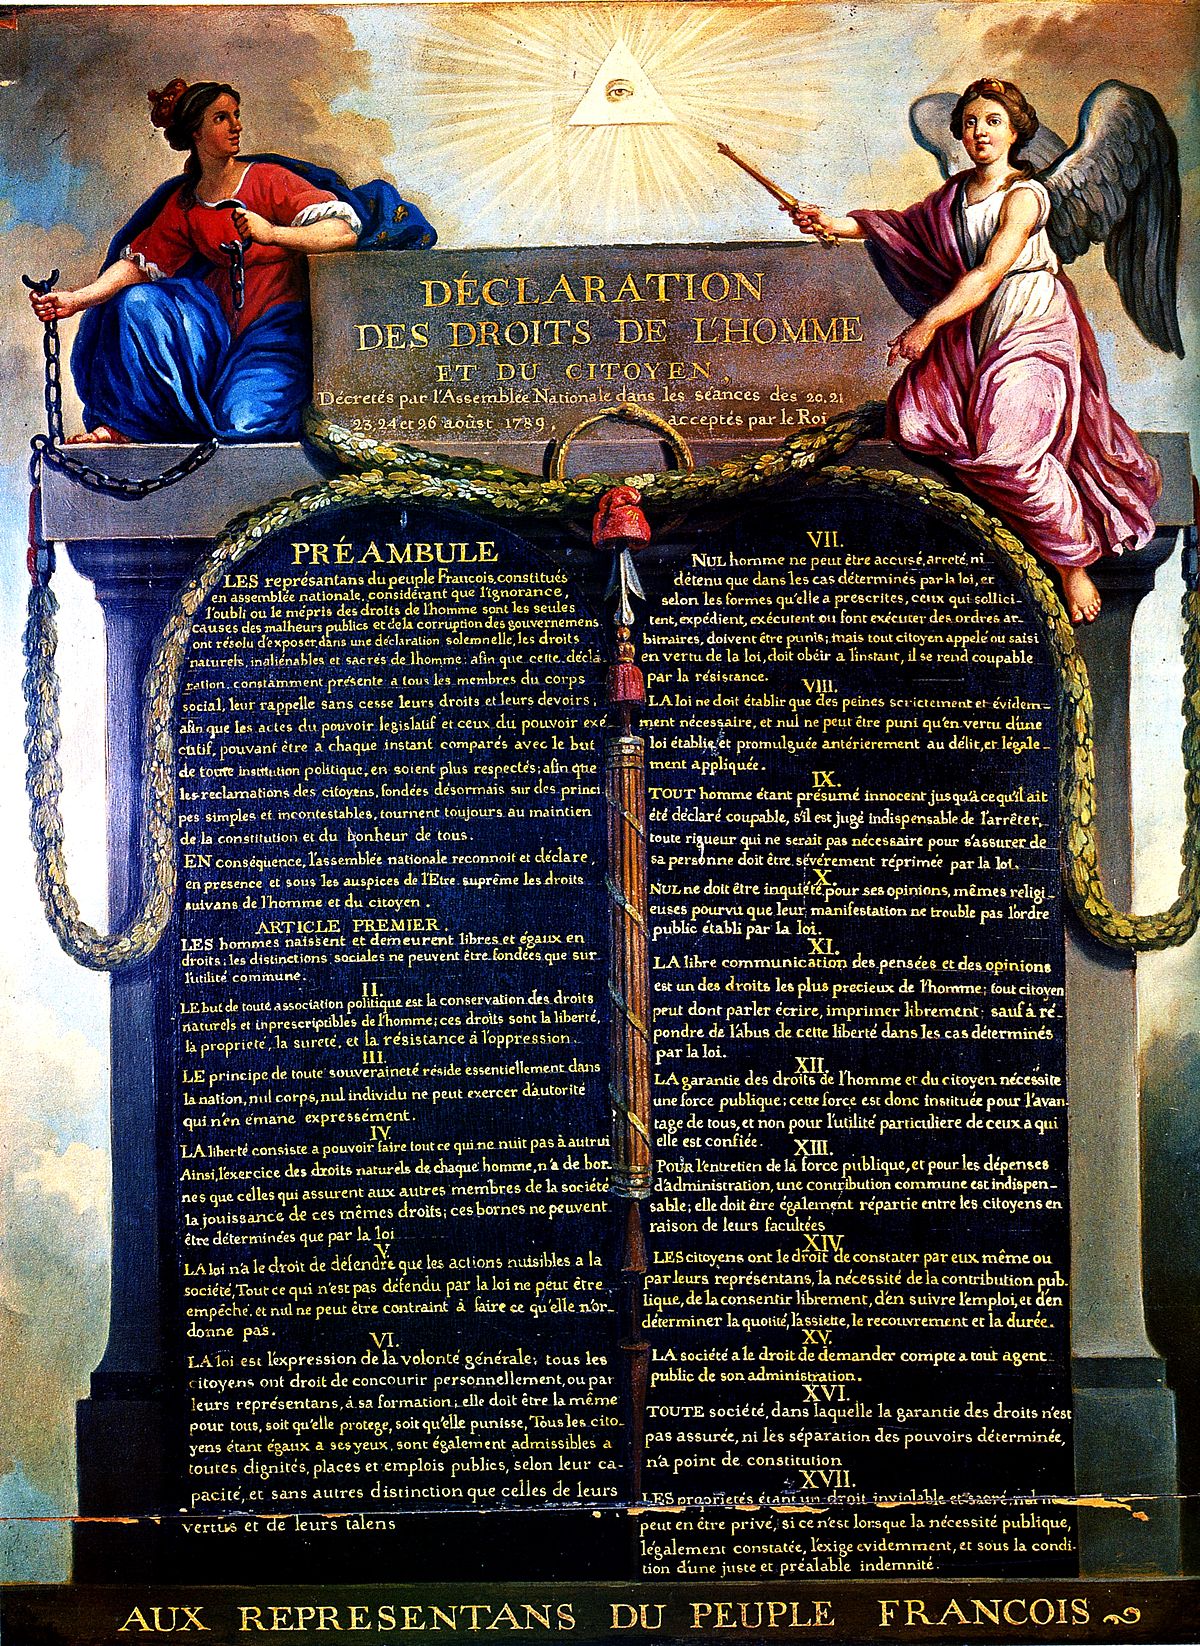 DÉCLARATION
DES DROITS DE L'HOMME
ET DU CITOYEN,
Décretés par l'Assemblée Nationale dans les séances des 20.21
23, 24 et 26 août 1789, acceptés par le Roi
PRÉAMBULE
LES représantans du peuple Francois, constitués
en assemblée nationale, considérant que l'ignorance,
l'oubli ou le mépris des droits de l'homme sont les seules
causes des malheurs publics et de la corruption des gouvernemens
ont résolu d'exposer dans une déclaration solemnelle, les droits
naturels, inaliénables et sacrés de l'homme: afin que cette décla-
ration, constamment présente a tous les membres du corps
social, leur rappelle sans cesse leurs droits et leurs devoirs;
afin que les actes du pouvoir legislatif et ceux du pouvoir exé-
cutif, pouvant être a chaque instant comparés avec le but
de toute institution politique, en soient plus respectés; afin que
les reclamations des citoyens, fondées désormais sur des princi
pes simples et incontestables, tournent toujours au maintien
de la constitution et du bonheur de tous.
EN conséquence, l'assemblée nationale reconnoit et déclare,
en presence et sous les auspices de l'Etre suprême les droits
suivans de l'homme et du citoyen.
ARTICLE PREMIER.
LES hommes naissent et demeurent libres et égaux en
droits; les distinctions sociales ne peuvent être fondées que sur
l'utilité commune.
II.
LE but de toute association politique est la conservation des droits
naturels et inprescriptibles de l'homme; ces droits sont la liberté,
la propriete, la sureté, et la résistance à l'oppression.
III.
LE principe de toute souveraineté réside essentiellement dans
la nation, nul corps, nul individu ne peut exercer d'autorité
qui n'en émane expressément.
IV.
LA liberté consiste a pouvoir faire tout ce qui ne nuit pas à autrui
Ainsi, l'exercice des droits naturels de chaque homme, n'a de bor-
nes que celles qui assurent aux autres membres de la société
la jouissance de ces mêmes droits; ces bornes ne peuvent
être déterminées que par la loi
V.
LA loi n'a le droit de défendre que les actions nuisibles a la
société, Tout ce qui n'est pas défendu par la loi ne peut être
empêché, et nul ne peut être contraint à faire ce qu'elle n'or-
donne pas.
VI.
LA loi est l'expression de la volonté générale; tous les
citoyens ont droit de concourir personnellement, ou par
leurs représentans, à sa formation; elle doit être la même
pour tous, soit qu'elle protege, soit qu'elle punisse, Tous les cito-
yens étant égaux a ses yeux, sont également admissibles a
toutes dignités, places et emplois publics, selon leur ca-
pacité, et sans autres distinction que celles de leurs
vertus et de leurs talens
VII.
NUL homme ne peut être accusé, arreté, ni
détenu que dans les cas déterminés par la loi, et
selon les formes qu'elle a prescrites, ceux qui sollici-
tent, expédient, exécutent ou font exécuter des ordres ar-
bitraires, doivent être punis; mais tout citoyen appelé ou saisi
en vertu de la loi, doit obéir a l'instant, il se rend coupable
par la résistance.
VIII.
LA loi ne doit établir que des peines strictement et évidem-
ment nécessaire, et nul ne peut être puni qu'en vertu d'une
loi établie et promulguée antérierement au délit, et légale-
ment appliquée.
IX.
TOUT homme étant présumé innocent jusqu'à ce qu'il ait
été déclaré coupable, s'il est jugé indispensable de l'arrêter,
toute rigueur qui ne serait pas nécessaire pour s'assurer de
sa personne doit être sévérement réprimée par la loi.
X.
NUL ne doit être inquiété pour ses opinions, mêmes religi-
euses pourvu que leur manifestation ne trouble pas l'ordre
public établi par la loi.
XI.
LA libre communication des pensées et des opinions
est un des droits les plus precieux de l'homme; tout citoyen
peut dont parler écrire, imprimer librement; sauf à ré-
pondre de l'abus de cette liberté dans les cas déterminés
par la loi.
XII.
LA garantie des droits de l'homme et du citoyen nécessite
une force publique; cette force est donc instituée pour l'avan-
tage de tous, et non pour l'utilité particuliere de ceux a qui
elle est confiée.
XIII.
POUR l'entretien de la force publique, et pour les dépenses
d'administration, une contribution commune est indispen-
sable; elle doit être également répartie entre les citoyens en
raison de leurs facultées
XIV.
LES citoyens ont le droit de constater par eux même ou
par leurs représentans, la nécessité de la contribution pub-
lique, de la consentir librement, d'en suivre l'emploi, et d'en
déterminer la quotité, l'assiette, le recouvrement et la durée.
XV.
LA société a le droit de demander compte a tout agent
public de son administration.
XVI.
TOUTE société, dans laquelle la garantie des droits n'est
pas assurée, ni les séparation des pouvoirs déterminée,
n'a point de constitution
XVII.
LES proprietés étant un droit inviolable et sacré, nul ne
peut en être privé, si ce n'est lorsque la nécessité publique,
légalement constatée, l'exige evidemment, et sous la condi-
tion d'une juste et préalable indemnité.
AUX REPRESENTANS DU PEUPLE FRANCOIS